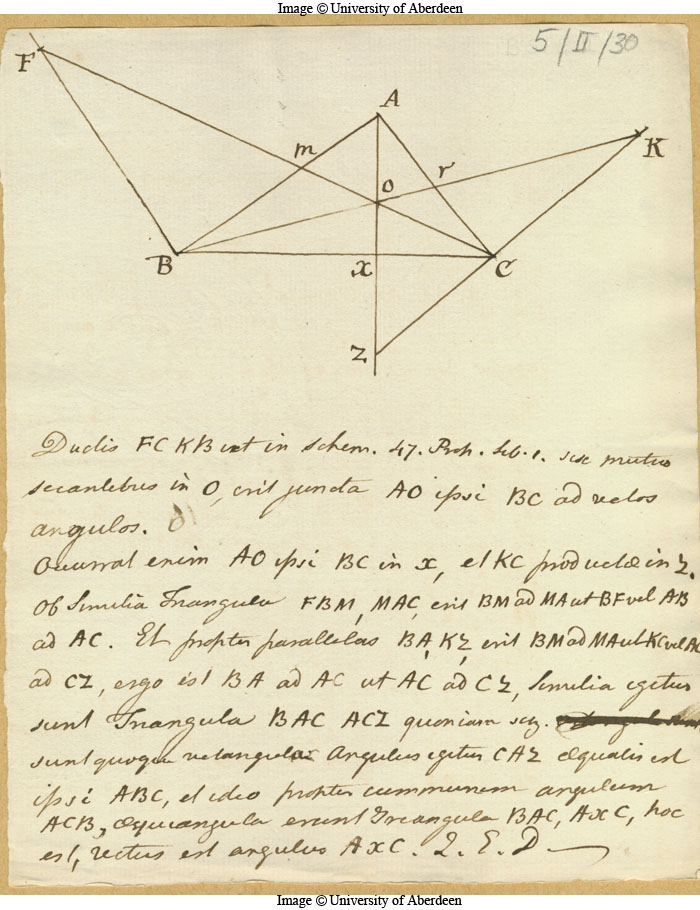 Image © University of Aberdeen
5/II/30
F
A
m
K
r
O
B
x
C
Z
Ductis FC KB ut in schem. 47. Prop. Lib. 1. sese mutuo
secantibus in O, erit juncta AO ipsi BC ad rectos
angulos.
Occurrat enim AO ipsi BC in x, et KC productæ in Z.
Ob Similia Triangula FBM, MAC, erit BM ad MA ut BF vel AB
ad AC. Et propter parallelas BA, KZ, erit BM ad MA ut KC vel AC
ad CZ, ergo est BA ad AC ut AC ad CZ, Similia igitur
sunt Triangula BAC ACZ quoniam
sunt quoque rectangula Angulus igitur CAZ æqualis est
ipsi ABC, et ideo propter communem angulum
ACB, æquiangula erunt Triangula BAC, AxC, hoc
est, rectus est angulus AxC. Q. E. D.
Image © University of Aberdeen